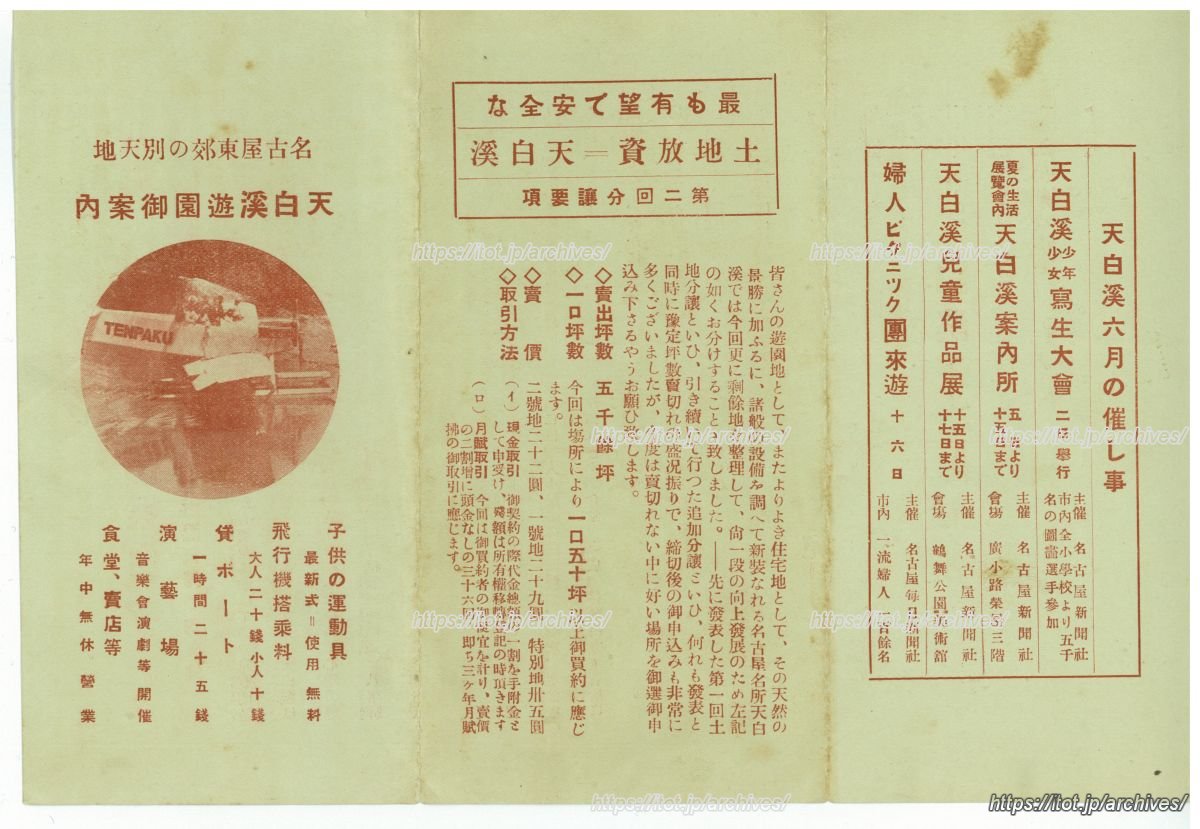 天白溪六月の催し事
天白溪少年少女寫生大會 二 擧行
主催 名古屋新聞社
市内全小學校より五千
名の圖畵選手參加
夏の生活展覽會內 天白溪案內所 五 より十五 まで
主催 名古屋新聞社
會塲 廣小路榮 三階
天白溪兒童作品展 十五日より十七日まで
主催 名古屋每日新聞社
會塲 鶴舞公園美術館
婦人ピクニック團來遊 十六日
市內 一流婦人 百餘名
最も有望で安全な
土地放資=天白溪
第二回分讓要項
皆さんの遊園地として、またよりよき住宅地として、その天然の
景勝に加ふるに、諸般の設備を調へて新裝なれる名古屋名所天白
溪では今回更に剩餘地を整理して、尙一段の向上發展のため左記
の如くお分けすることに致しました。——先に發表した第一回土
地分讓といひ、引き續いて行つた追加分讓といひ、何れも發表と
同時に豫定坪數賣切れの盛況振りで、締切後の御申込みも非常に
多くございましたが、今度は賣切れない中に好い場所を御選御申
込み下さるやうお願ひ致します。
◇賣出坪數 五千餘坪
◇一口坪數 今回は塲所により一口五十坪以上御買約に應じ
ます。
◇賣價 二號地二十二圓、一號地二十九圓、特別地卅五圓
◇取引方法 (イ)現金取引 御契約の際代金總額の一割を手附金と
して申受け、殘額は所有權移轉登記の時頂きます
(ロ)月賦取引 今回は御買約者の御便宜を計り、賣價
の二割增に頭金なしの三十六回卽ち三ヶ年月賦
拂の御取引に應じます。
名古屋東郊の別天地
天白溪遊園御案內
TENPAKU
子供の運動具
最新式=使用無料
飛行機搭乘料
大人二十錢小人十錢
貸ボート
一時間二十五錢
演藝場
音樂會演劇等開催
食堂、賣店等
年中無休營業
https://itot.jp/archives/
https://itot.jp/archives/
https://itot.jp/archives/
https://itot.jp/archives/
https://itot.jp/archives/
https://itot.jp/archives/
https://itot.jp/archives/
https://itot.jp/archives/
https://itot.jp/archives/